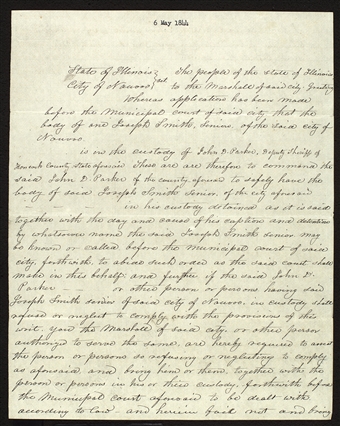 6 May 1844
State of Illinois The people of the state of Illinois
City of Nauvoo Sct to the Marshall of said city. Greeting
Whereas application has been made
before the Municipal court of said city that the
body of one Joseph Smith, Senior, of the said city of
Nauvoo.
is in the custody of John D. Parker, Deputy Sheriff of
Hancock County, state aforesaid These are therefore to command the
said John D. Parker of the county aforesaid to safely have the
body of said Joseph Smith Senior, of the city aforesaid
in his custody detained as it is said
together with the day and cause of his caption and detention
by whatsoever name the said Joseph Smith senior may
be known or called before the Municipal court of said
city, forthwith, to abide such order as the said court shall
make in this behalf: and further if the said John D.
Parker — or other person or persons having said
Joseph Smith senior of said city of Nauvoo, in custody shall
refuse or neglect to comply with the provisions of this
writ, you the Marshall of said city, or other person
authorized to serve the same, are hereby required to arrest
the person or persons so refusing or neglecting to comply
as aforesaid and bring him or them together with the
person or persons in his or their custody, forthwith before
the Municipal court aforesaid to be dealt with
according to law. and herein fail not and bring